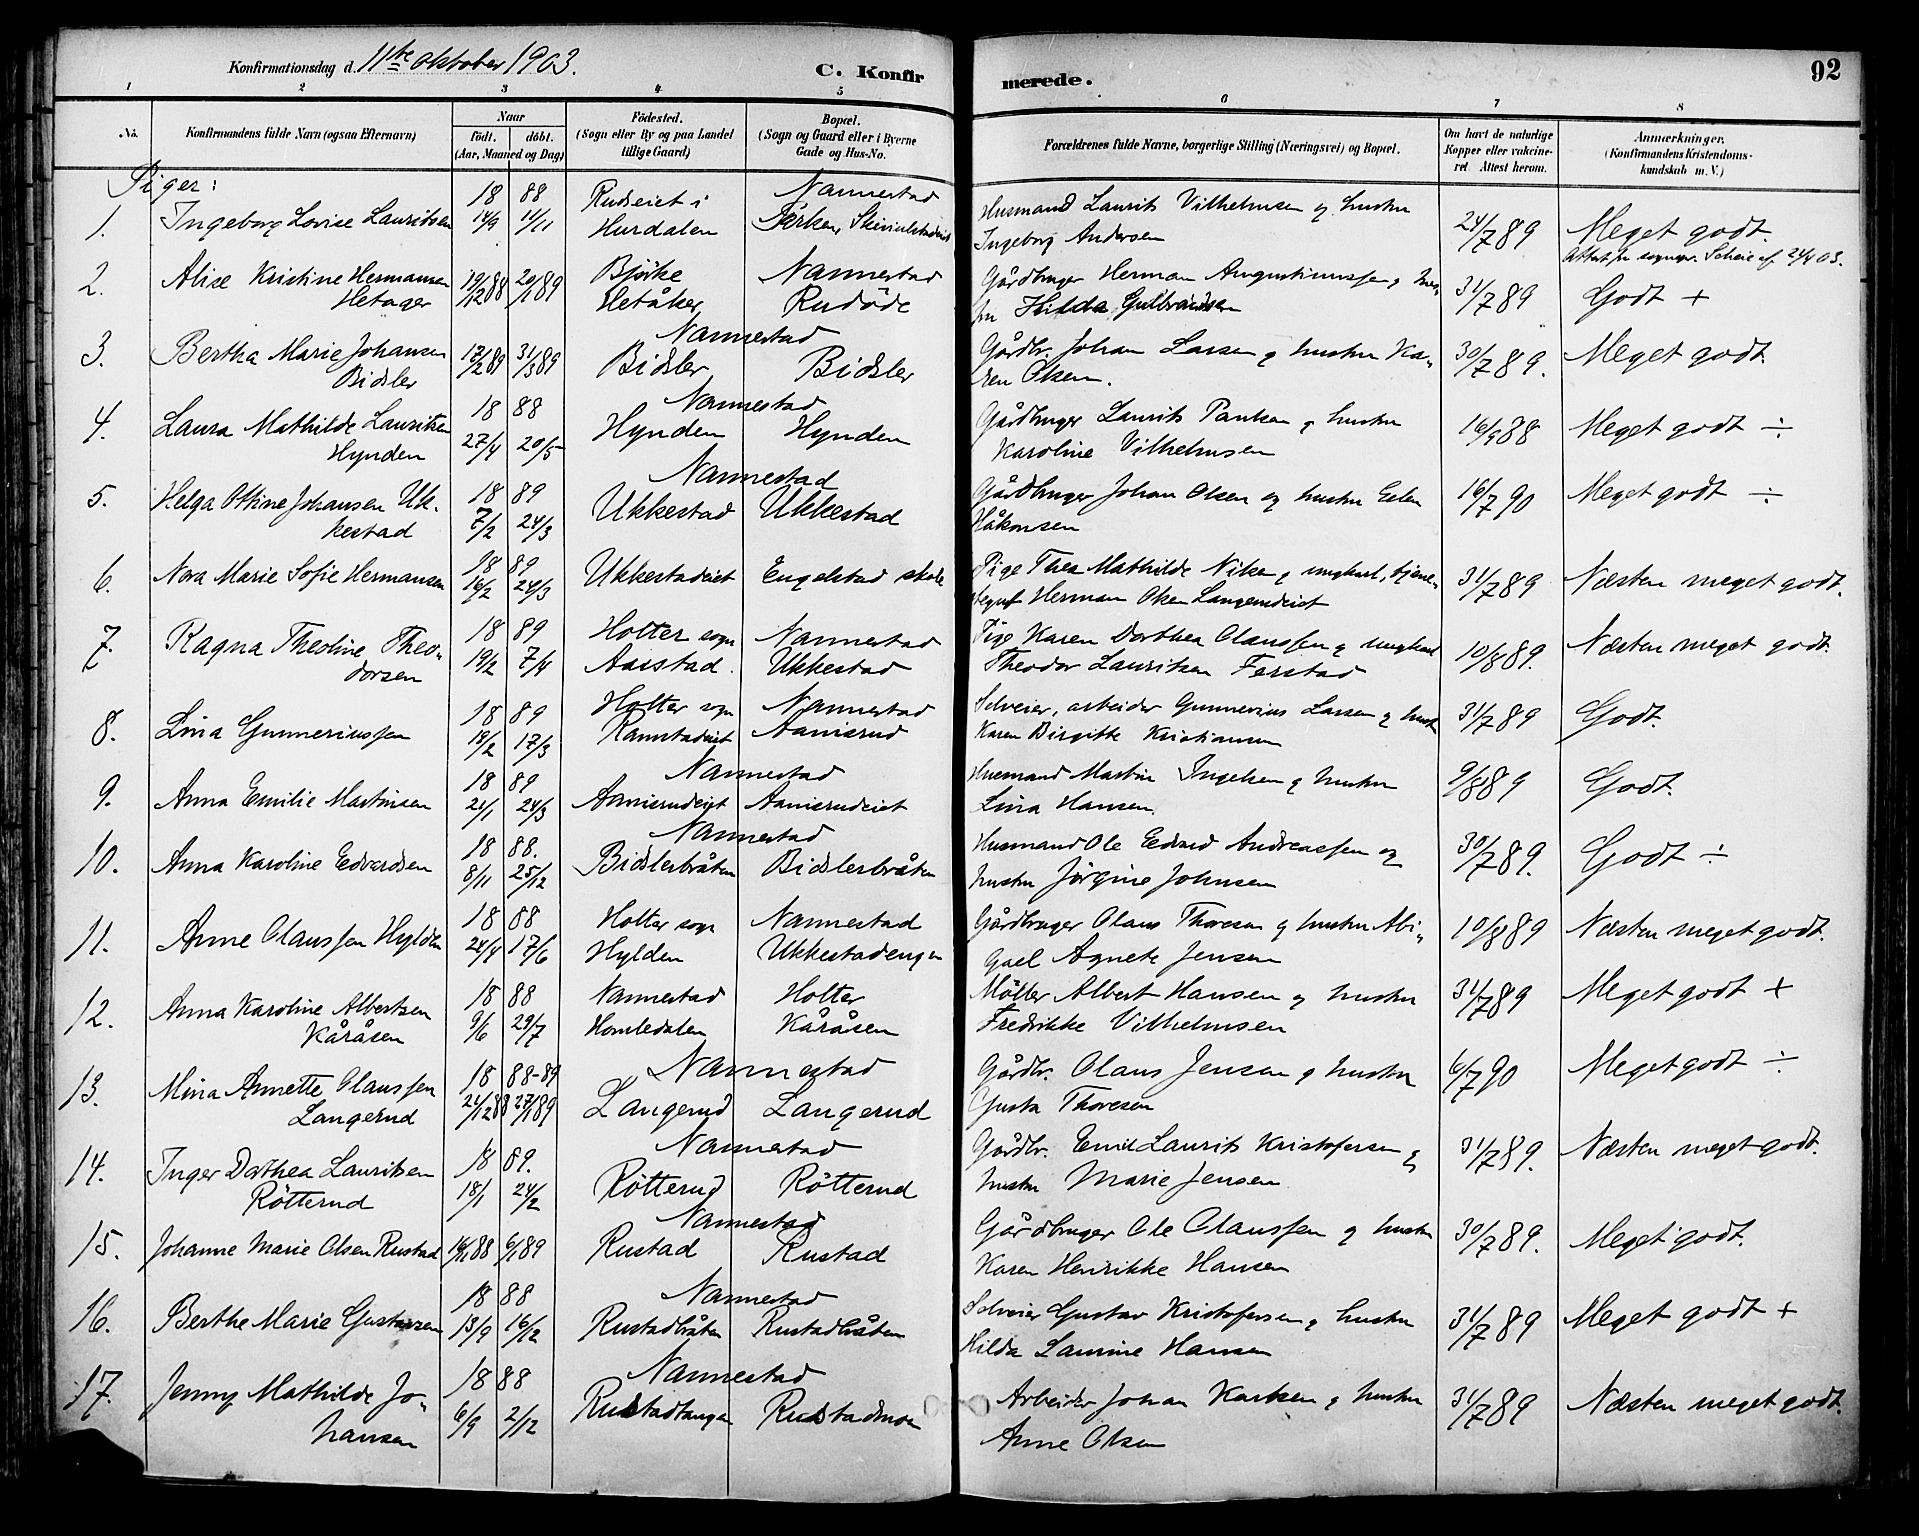 Konfirmationsdag d. 11te oktober 1903.
C. Konfirmerede.
92
1 2 3 4 5 6 7 8
No.
Konfirmandens fulde Navn (ogsaa Efternavn)
Naar
födt. döbt.
(Aar, Maaned og Dag)
Födested.
(Sogn eller By og paa Landet
tillige Gaard)
Bopæl.
(Sogn og Gaard eller i Byerne
Gade og Hus-No.
Forældrenes fulde Navne, borgerlige Stilling (Næringsvei) og Bopæl.
Om havt de naturlige
Kopper eller vakcine-
ret Attest herom.
Anmærkninger,
(Konfirmandens Kristendoms-
kundskab m. V.)
Piger:
18 88 Rudseiet i Nannestad Husmand Laurits Vilhelmsen og hustru
1. Ingeborg Lovise Lauritsen 14/9 11/11 Hurdalen Ingeborg Andersen 24/7 89 Meget godt.
2. Alise Kristine Hermansen 19/12 88 20/1 89 Bjørke Nannestad Gårdbruger Herman Augustinussen og hus-
Hetager Hetåker Rudöde tru Hilda Gulbrandsen 31/7 89 Godt +
Nannestad
3. Bertha Marie Johansen 17/2 89 31/3 89 Bidsler Bidsler Gårdbr. Johan Larsen og hustru Ka-
Bidsler ren Olsen. 30/7 89. Meget godt
18 88 Nannestad Gårdbruger Laurits Paulsen og hustru
4. Laura Mathilde Lauritsen 27/4 20/5 Hynden Hynden 16/9 88 Meget godt ÷
Hynden Karoline Vilhelmsen
Nannestad
5. Helga Othine Johansen Uk- 18 89 Ukkestad Ukkestad Gårdbruger Johan Olsen og hustru Elen 16/7 90 Meget godt ÷
kestad 7/2 24/3 Håkonsen
18 89 Pige Thea Mathilde Nilsen og ungkarl, tjene-
6. Nora Marie Sofie Hermansen 16/2 24/3 Ukkestadeiet Engelstad skole Herman Olsen Langerudeiet 31/7 89 Næsten meget godt.
7. Ragna Theoline Theo- 18 89 Holter sogn Nannestad Pige Karen Dorthea Olaussen og ungkarl
dorsen 19/2 7/4 Aaistad. Ukkestad Theodor Lauritsen Ferstad 10/8 89. Næsten meget godt.
18 89 Holter sogn Nannestad Selveier, arbeider Gunnerius Larsen og hust
8. Lina Gunneriussen 19/2 17/3 Aamisrud Karen Birgitte Kristiansen 31/7 89 Godt.
18 89 Nannestad Husmand Martin Ingelsen og hustru
9. Anna Emilie Martinsen 21/1 24/3 Aamisrudeiet Aamisrudeiet Lina Hansen. 9/8 89 Godt.
18 88. Nannestad Husmand Ole Edvard Andreassen og
10. Anna Karoline Edvardsen 8/11 25/12 Bidslerbråten Bidslerbråten hustru Jörgine Johnsen 30/7 89. Godt ÷
18 88 Holter sogn Nannestad Gårdbruger Olaus Thoresen og hustru Abi-
11. Anne Olaussen Hylden 24/4 17/6 Hylden Ukkestadengen gael Agnete Jensen 10/8 89 Næsten meget godt.
12. Anna Karoline Albertsen 18 88 Nannestad Holter Möller Albert Hansen og hustru 31/7 89 Meget godt +
Kåråsen 9/6 29/7 Homledalen Kåråsen Fredrikke Vilhelmsen
18 88-89 Nannestad
13. Mina Annette Olaussen 21/12 88 27/1 89 Langerud Langerud Gårdbr. Olaus Jensen og hustru 6/7 90 Meget godt ÷
Langerud Gusta Thoresen
Nannestad
14. Inger Dorthea Lauritsen 18 89. Rötterud Rötterud Gårdbr. Emil Laurits Kristofersen og 31/7 89. Næsten meget godt.
Rötterud 18/1 24/2 hustru Marie Jensen
Nannestad
15. Johanne Marie Olsen Rustad 88 6/1 89 Rustad Rustad Gårdbruger Ole Olaussen og hustru 30/7 89. Meget godt.
Karen Henrikke Hansen
18 88 Nannestad
16. Berthe Marie Gustavsen 13/9 16/12 Rustadbråten Rustadbråten Selveier Gustav Kristofersen og hustru 31/7 89 Meget godt +
Hilda Laurine Hansen
18 88 Nannestad
17. Jenny Mathilde Jo- 6/9 2/12 Rustadtangen Rustadmoen Arbeider Johan Karlsen og hustru 31/7 89 Næsten meget godt.
hansen Anne Olsen